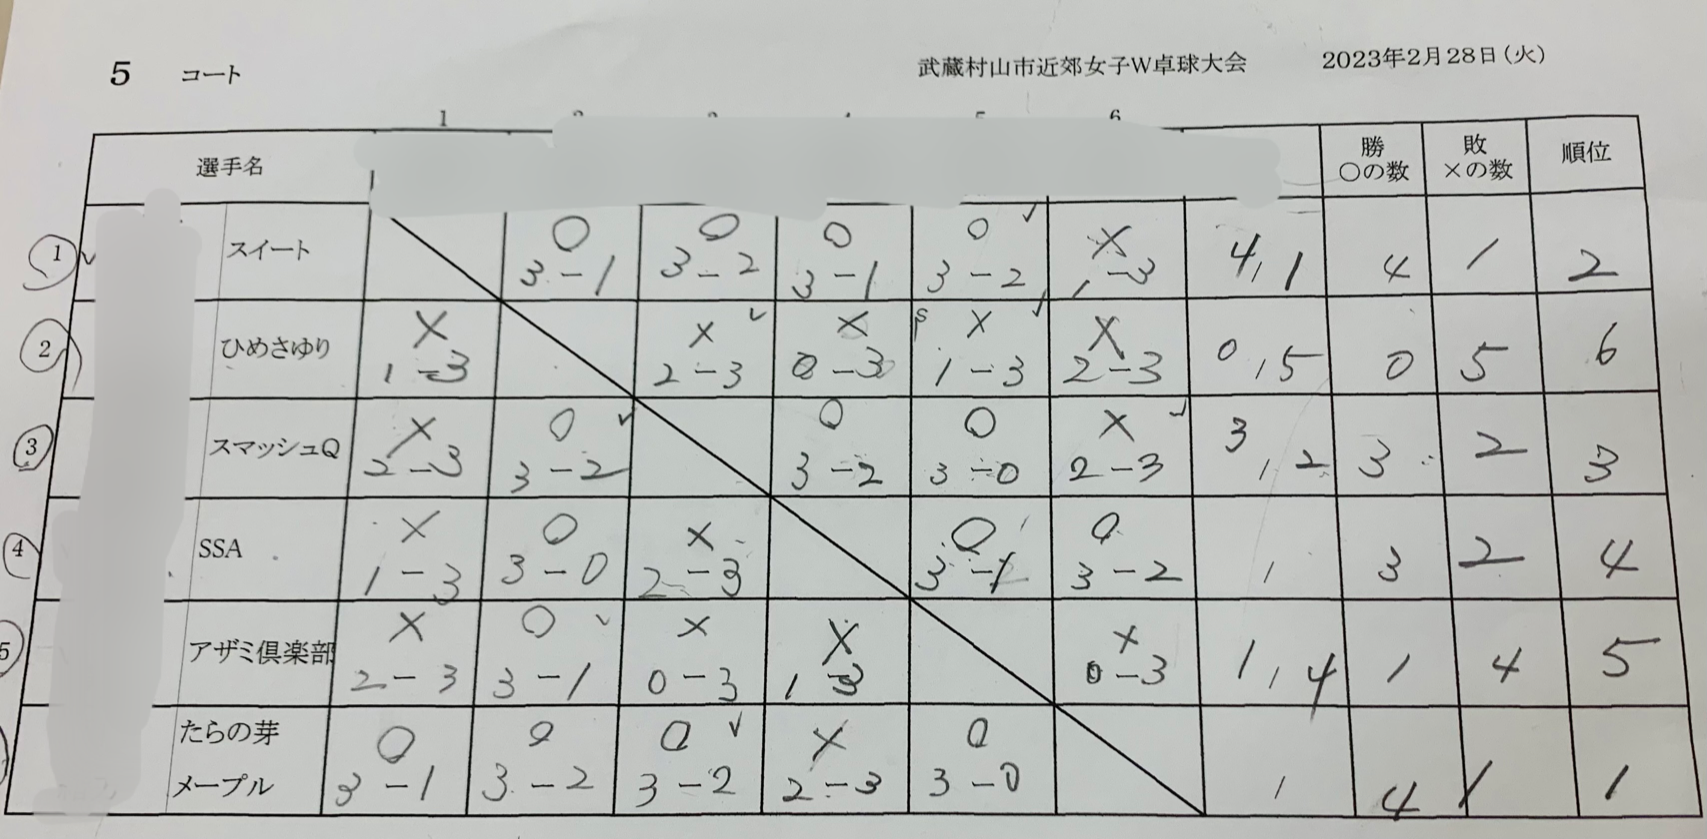 5 コート 武蔵村山市近郊女子W卓球大会 2023年2月28日(火)
1 6
選手名 勝 ○の数 敗 ×の数 順位
① スイート ○ 3-1 ○ 3-2 ○ 3-1 ○ 3-2 × 1-3 4,1 4 1 2
② ひめさゆり × 1-3 × 2-3 × 0-3 × 1-3 × 2-3 0,5 0 5 6
③ スマッシュQ × 2-3 ○ 3-2 ○ 3-2 ○ 3-0 × 2-3 3,2 3 2 3
④ SSA × 1-3 ○ 3-0 × 2-3 ○ 3-1 ○ 3-2 , 3 2 4
5 アザミ倶楽部 × 2-3 ○ 3-1 × 0-3 × 1-3 × 0-3 1,4 1 4 5
たらの芽
メープル ○ 3-1 ○ 3-2 ○ 3-2 × 2-3 ○ 3-0 , 4 1 1